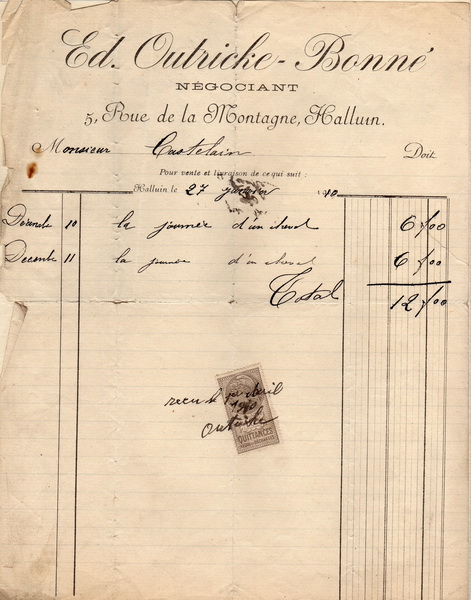 Ed. Outricke-Bonné
NÉGOCIANT
5, Rue de la Montagne, Halluin.
Monsieur Castelain Doit
Pour vente et livraison de ce qui suit :
Halluin le 27 janvier 10
Décembre 10 la journée d'un cheval 6f00
Décembre 11 la journée d'un cheval 6f00
Total 12f00
reçu le 1er Avril
1910
Outricke
QUITTANCES